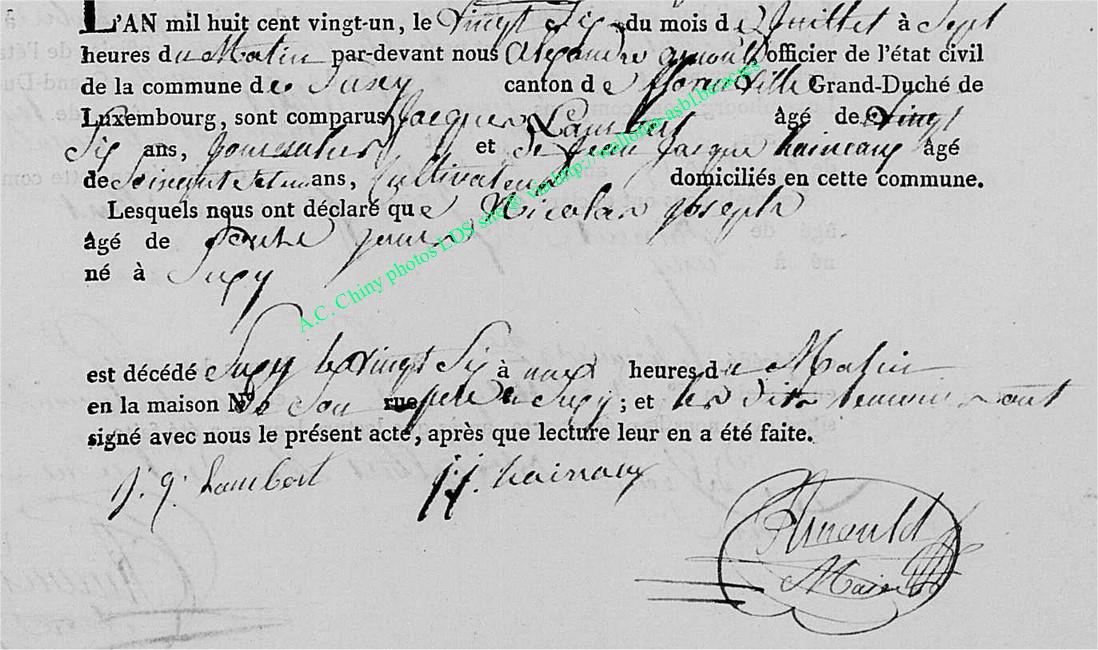 L'AN mil huit cent vingt-un, le vingt Six du mois de Juillet à Sept
heures du Matin par-devant nous Alexandre arnould officier de l'état civil
de la commune de Suxy canton de florenville Grand-Duché de
Luxembourg, sont comparus Jacques Lambert âgé de Vingt
Six ans, et de Jean Jacque hainaux âgé
de ans, Cultivateur domiciliés en cette commune.
Lesquels nous ont déclaré que Nicolas joseph
âgé de jours
né à Suxy
est décédé Suxy le vingt Six à heures du Matin
en la maison N.º de Son rue pere a Suxy ; et les dits temoins ont
signé avec nous le présent acte, après que lecture leur en a été faite.
j. j. Lambert j. j. hainaux
Arnould
Maire
A.C. Chiny photos LDS site @ via http://wallonia-asbl.be/actes